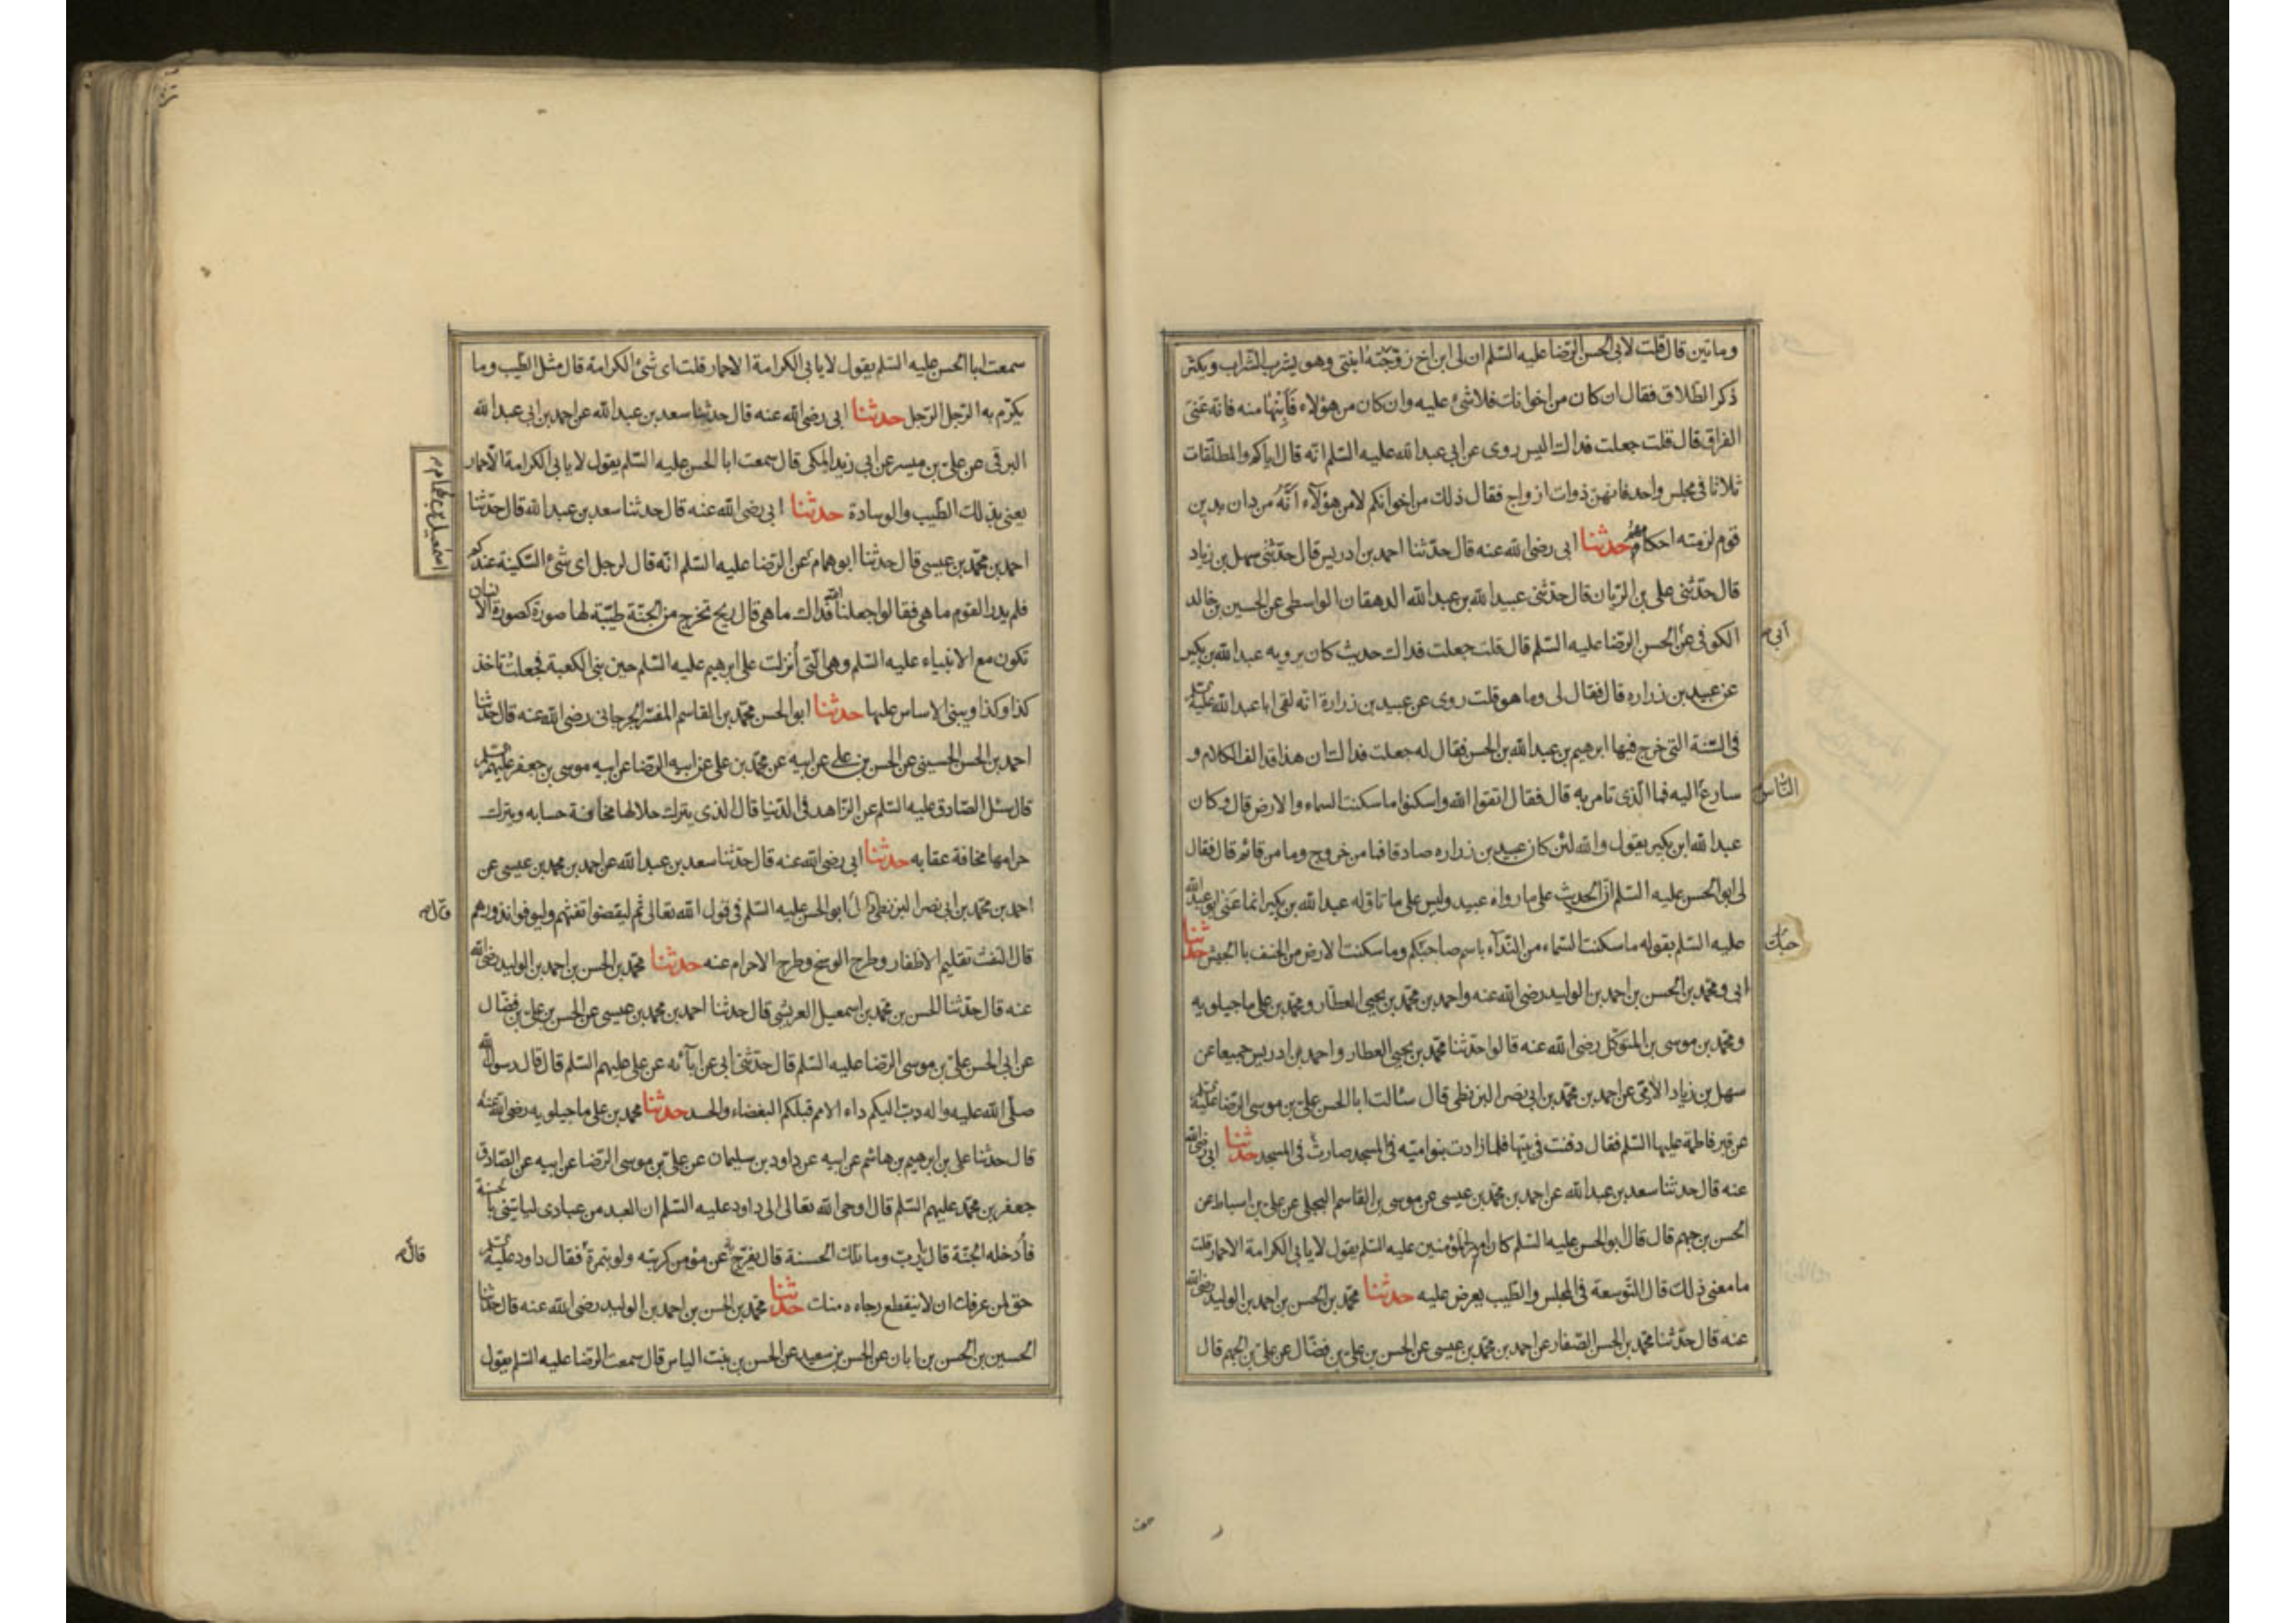 وماتين قال قلت لابى الحسن الرضا عليه السّلم ان لى ابن اخ زوّجته ابنتى وهو يشرب الشّراب ويكثر
ذكر الطّلاق فقال ان كان من اخوانك فلا شئ عليه وان كان من هؤلاء فَأَبِنْها منه فانّه عَنىَ
الفراق قال قلت جعلت فداك اليس روى عن ابى عبد الله عليه السّلم انّه قال اياكم والمطلّقات
ثلاثا فى مجلس واحد فانهنّ ذوات ازواج فقال ذلك من اخوانكم لا من هؤلاء انّه من دان بدين
قوم لزمته احكامهم حدثنا ابى رضى الله عنه قال حدّثنا احمد بن ادريس قال حدّثنى سهل بن زياد
قال حدّثنى على بن الرّيان قال حدّثنى عبيد الله بن عبد الله الدهقان الواسطى عن الحسين بن خالد
الكوفى عن الحسن الرضا عليه السّلم قال قلت جعلت فداك حديث كان يرويه عبد الله بن بكير
ابى
عن عبيد بن زراره قال فقال لى وما هو قلت روى عن عبيد بن زرارة انه لقى ابا عبد الله عليه السلم
فى السّنة التى خرج فيها ابرهيم بن عبد الله بن الحسن فقال له جعلت فداك ان هذا قد الف الكلام و
سارع اليه فما الّذى تامر به قال فقال اتقوا الله واسكنوا ما سكنت السماء والارض قال وكان
النّاس
عبد الله ابن بكير يقول والله لئن كان عبيد بن زراره صادقا فما من خروج وما من قائم قال فقال
لى ابو الحسن عليه السّلم انّ الحديث على ما رواه عبيد وليس على ما تاوّله عبد الله بن بكير انما عَنى ابو عبد الله
عليه السّلم بقوله ما سكنت السّماء من النّداء باسم صاحبكم وما سكنت الارض من الخسف بالجيش حدثنا
ابى ومحمّد بن الحسن بن احمد بن الوليد رضى الله عنه واحمد بن محمّد بن يحيى العطّار ومحمّد بن على ماجيلويه
ومحمّد بن موسى بن المتوكّل رضى الله عنه قالوا حدّثنا محمّد بن يحيى العطار واحمد بن ادريس جميعا عن
سهل بن زياد الأدمى عن احمد بن محمّد بن ابى نصر البزنطى قال سئالت ابا الحسن على بن موسى الرّضا عليه السلم
عن قبر فاطمة عليها السّلم فقال دفنت فى بيتها فلما زادت بنو اميّه فى المسجد صارت فى المسجد حدثنا ابى رضى الله
عنه قال حدثنا سعد بن عبد الله عن احمد بن محمّد بن عيسى عن موسى بن القاسم البجلى عن على بن اسباط عن
الحسن بن جهم قال قال ابو الحسن عليه السّلم كان امير المؤمنين عليه السّلم يقول لا يابى الكرامة الا حمار قلت
ما معنى ذلك قال التّوسعة فى المجلس والطّيب يعرض عليه حدثنا محمّد بن الحسن بن احمد بن الوليد رضى الله
عنه قال حدّثنا محمّد بن الحسن الصّفار عن احمد بن محمّد بن عيسى عن الحسن بن على بن فضّال عن على بن الجهم قال
سمعت ابا الحسن عليه السّلم يقول لا يابى الكرامة الا حمار قلت اى شئ الكرامة قال مثل الطّيب وما
يكرّم به الرّجل الرّجل حدثنا ابى رضى الله عنه قال حدثنا سعد بن عبد الله عن احمد بن ابى عبد الله
البرقى عن علىّ بن ميسر عن ابى زيد المكى قال سمعت ابا الحسن عليه السّلم يقول لا يابى الكرامة الّا حمار
يعنى بذلك الطّيب والوسادة حدثنا ابى رضى الله عنه قال حدثنا سعد بن عبد الله قال حدّثنا
احمد بن محمّد بن عيسى قال حدثنا ابو همام عن الرّضا عليه السّلم انّه قال لرجل اى شئ السّكينة عندكم
اسمعيل بن همام
فلم يدر القوم ما هى فقالوا جعلنا الله فداك ما هى قال ريح تخرج من الجنّة طيّبة لها صورة كصورة الانسان
تكون مع الانبياء عليه السّلم وهى الّتى أُنزلت على ابرهيم عليه السّلم حين بنى الكعبة فجعلت تاخذ
كذا وكذا ويبنى الاساس عليها حدثنا ابو الحسن محمّد بن القاسم المفسّر الجرجانى رضى الله عنه قال حدّثنا
احمد بن الحسن الحسينى عن الحسن بن على عن ابيه عن محمّد بن على عن ابيه الرّضا عن ابيه موسى بن جعفر عليهم السلم
قال سئل الصّادق عليه السّلم عن الزّاهد فى الدّنيا قال الذى يترك حلالها مخافة حسابه ويترك
حرامها مخافة عقابه حدثنا ابى رضى الله عنه قال حدّثنا سعد بن عبد الله عن احمد بن محمد بن عيسى عن
احمد بن محمّد بن ابى نصر البزنطى قال قال ابو الحسن عليه السّلم فى قول الله تعالى ثم ليقضوا تفثهم وليوفوا نذورهم
قال
قال التّفث تقليم الاظفار وطرح الوسخ وطرح الاحرام عنه حدثنا محمّد بن الحسن بن احمد بن الوليد رضى الله
عنه قال حدّثنا الحسن بن محمّد بن اسمعيل العريشى قال حدثنا احمد بن محمد بن عيسى عن الحسن بن على بن فضّال
عن ابى الحسن علىّ بن موسى الرّضا عليه السّلم قال حدّثنى ابى عن ابآئه عن على عليهم السّلم قال قال رسول الله
صلّى الله عليه واله دبّ اليكم داء الامم قبلكم البغضاء والحسد حدثنا محمد بن على ماجيلويه رضى الله عنه
قال حدثنا على بن ابرهيم بن هاشم عن ابيه عن داود بن سليمان عن علىّ بن موسى الرّضا عن ابيه عن الصّادق
جعفر بن محمّد عليهم السّلم قال اوحى الله تعالى الى داود عليه السّلم ان العبد من عبادى لياتينى بالحسنة
فأدخله الجنّة قال يا ربّ وما تلك الحسنة قال يفرّج عن مؤمن كربته ولو بتمرة فقال داود عليه السلم
قال
حق لمن عرفك ان لا ينقطع رجاءه منك حدثنا محمّد بن الحسن بن احمد بن الوليد رضى الله عنه قال حدّثنا
الحسين بن الحسن بن ابان عن الحسن بن سعيد عن الحسن بن بنت الياس قال سمعت الرّضا عليه السّلم يقول